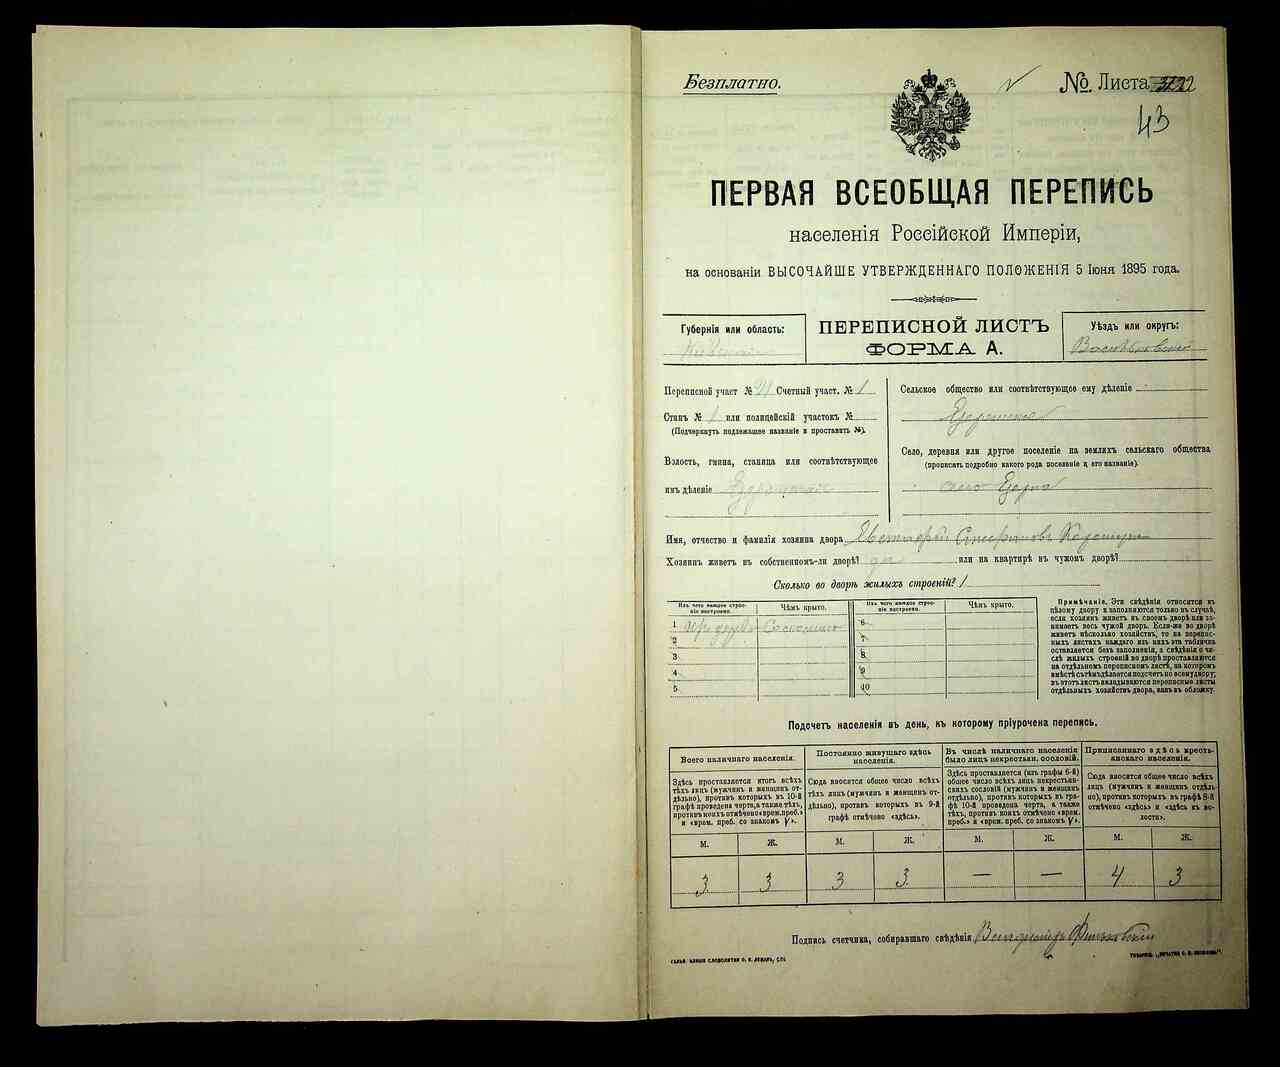 Безплатно.
№. Листа 22
43
ПЕРВАЯ ВСЕОБЩАЯ ПЕРЕПИСЬ
населенія Россійской Имперіи,
на основаніи ВЫСОЧАЙШЕ УТВЕРЖДЕННАГО ПОЛОЖЕНІЯ 5 Іюня 1895 года.
Губернія или область:
ПЕРЕПИСНОЙ ЛИСТЪ
ФОРМА А.
Уѣздъ или округъ:
Васильковскій
Переписной участ № 21 Счетный участ. № 1
Станъ № 1 или полицейскій участокъ №
(Подчеркнуть подлежащее названіе и проставить №).
Волость, гмина, станица или соотвѣтствующее
имъ дѣленіе
Сельское общество или соотвѣтствующее ему дѣленіе
Село, деревня или другое поселеніе на земляхъ сельскаго общества
(прописать подробно какого рода поселеніе и его названіе).
село
Имя, отчество и фамилія хозяина двора
Хозяинъ живетъ въ собственномъ-ли дворѣ? да или на квартирѣ въ чужомъ дворѣ?
Сколько во дворѣ жилыхъ строеній? 1
Изъ чего каждое строеніе построено.
Чѣмъ крыто.
Изъ чего каждое строеніе построено.
Чѣмъ крыто.
1
2
3
4
5
6
7
8
9
10
Примѣчаніе. Эти свѣдѣнія относятся къ
цѣлому двору и заполняются только въ случаѣ,
если хозяинъ живетъ въ своемъ дворѣ или занимаетъ
весь чужой дворъ. Если-же во дворѣ
живетъ нѣсколько хозяйствъ, то на переписныхъ
листахъ каждаго изъ нихъ эта табличка
оставляется безъ заполненія, а свѣдѣнія о числѣ
жилыхъ строеній во дворѣ проставляются
на отдѣльномъ переписномъ листѣ, на которомъ
вмѣстѣ съ тѣмъ дѣлается подсчетъ по всему двору;
въ этотъ листъ вкладываются переписные листы
отдѣльныхъ хозяйствъ двора, какъ въ обложку.
Подсчетъ населенія въ день, къ которому пріурочена перепись.
Всего наличнаго населенія.
Постоянно живущаго здѣсь
населенія.
Въ числѣ наличнаго населенія
было лицъ некрестьян. сословій.
Приписаннаго здѣсь крестьянскаго
населенія.
Здѣсь проставляется итогъ всѣхъ
тѣхъ лицъ (мужчинъ и женщинъ отдѣльно),
противъ которыхъ въ 10-й
графѣ проведена черта, а также тѣхъ,
противъ коихъ отмѣчено «врем. преб.»
и «врем. преб. со знакомъ V».
Сюда вносится общее число всѣхъ
тѣхъ лицъ (мужчинъ и женщинъ отдѣльно),
противъ которыхъ въ 9-й
графѣ отмѣчено «здѣсь».
Здѣсь проставляется (изъ графы 6-й)
общее число всѣхъ лицъ некрестьянскихъ
сословій (мужчинъ и женщинъ
отдѣльно), противъ которыхъ въ графѣ
10-й проведена черта, а также
тѣхъ, противъ коихъ отмѣчено «врем.
преб.» и «врем. преб. со знакомъ V».
Сюда вносится общее число всѣхъ
лицъ (мужчинъ и женщинъ отдѣльно),
противъ которыхъ въ графѣ 8-й
отмѣчено «здѣсь» и «здѣсь къ волости».
М. Ж. М. Ж. М. Ж. М. Ж.
3 3 3 3 — — 4 3
Подпись счетчика, собиравшаго свѣдѣнія